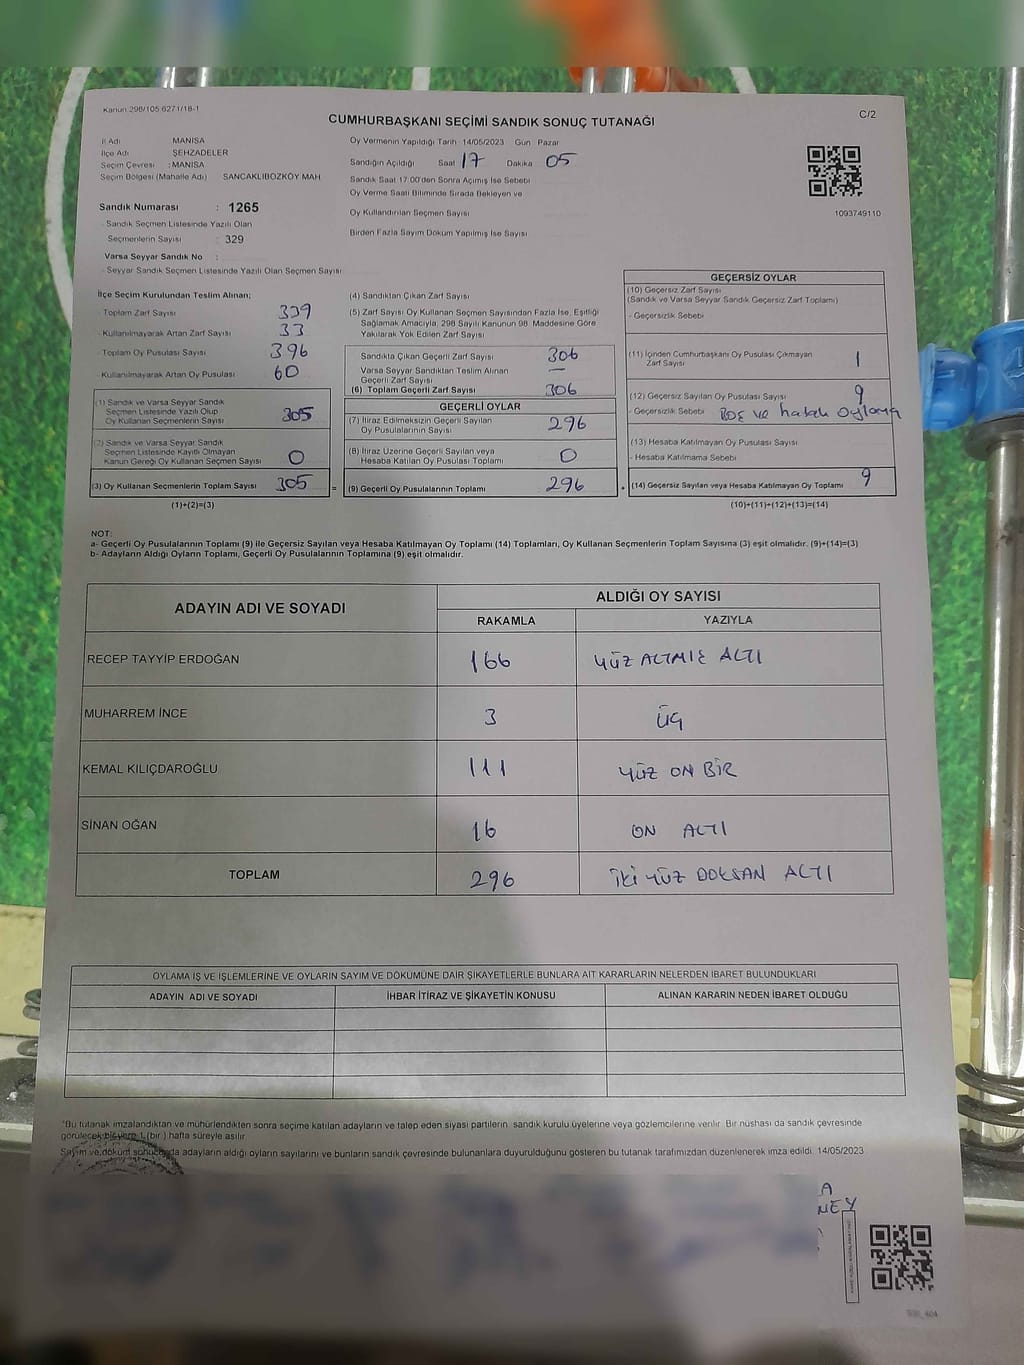 Kanun 298/105 6271/18-1
CUMHURBAŞKANI SEÇİMİ SANDIK SONUÇ TUTANAĞI
C/2
İl Adı MANİSA
İlçe Adı ŞEHZADELER
Seçim Çevresi : MANİSA
Seçim Bölgesi (Mahalle Adı) SANCAKLIBOZKÖY MAH
Sandık Numarası : 1265
- Sandık Seçmen Listesinde Yazılı Olan
Seçmenlerin Sayısı : 329
Varsa Seyyar Sandık No :
- Seyyar Sandık Seçmen Listesinde Yazılı Olan Seçmen Sayısı
Oy Vermenin Yapıldığı Tarih 14/05/2023 Gün Pazar
Sandığın Açıldığı Saat 17 Dakika 05
Sandık Saat 17:00'den Sonra Açımış İse Sebebi
Oy Verme Saati Bitiminde Sırada Bekleyen ve
Oy Kullandırılan Seçmen Sayısı
Birden Fazla Sayım Döküm Yapılmış İse Sayısı
1093749110
İlçe Seçim Kurulundan Teslim Alınan;
- Toplam Zarf Sayısı 339
- Kullanılmayarak Artan Zarf Sayısı 33
- Toplam Oy Pusulası Sayısı 396
- Kullanılmayarak Artan Oy Pusulası 60
(1) Sandık ve Varsa Seyyar Sandık
Seçmen Listesinde Yazılı Olup
Oy Kullanan Seçmenlerin Sayısı 305
(2) Sandık ve Varsa Seyyar Sandık
Seçmen Listesinde Kayıtlı Olmayan
Kanun Gereği Oy Kullanan Seçmen Sayısı 0
(3) Oy Kullanan Seçmenlerin Toplam Sayısı 305
(1)+(2)=(3)
(4) Sandıktan Çıkan Zarf Sayısı
(5) Zarf Sayısı Oy Kullanan Seçmen Sayısından Fazla İse, Eşitliği
Sağlamak Amacıyla, 298 Sayılı Kanunun 98. Maddesine Göre
Yakılarak Yok Edilen Zarf Sayısı
Sandıkta Çıkan Geçerli Zarf Sayısı 306
Varsa Seyyar Sandıktan Teslim Alınan
Geçerli Zarf Sayısı —
(6) Toplam Geçerli Zarf Sayısı 306
GEÇERLİ OYLAR
(7) İtiraz Edilmeksizin Geçerli Sayılan
Oy Pusulalarının Sayısı 296
(8) İtiraz Üzerine Geçerli Sayılan veya
Hesaba Katılan Oy Pusulası Toplamı 0
= (9) Geçerli Oy Pusulalarının Toplamı 296 +
GEÇERSİZ OYLAR
(10) Geçersiz Zarf Sayısı
(Sandık ve Varsa Seyyar Sandık Geçersiz Zarf Toplamı)
- Geçersizlik Sebebi
(11) İçinden Cumhurbaşkanı Oy Pusulası Çıkmayan
Zarf Sayısı 1
(12) Geçersiz Sayılan Oy Pusulası Sayısı 9
- Geçersizlik Sebebi Boş ve hatalı oylama
(13) Hesaba Katılmayan Oy Pusulası Sayısı
- Hesaba Katılmama Sebebi
(14) Geçersiz Sayılan veya Hesaba Katılmayan Oy Toplamı 9
(10)+(11)+(12)+(13)=(14)
NOT:
a- Geçerli Oy Pusulalarının Toplamı (9) ile Geçersiz Sayılan veya Hesaba Katılmayan Oy Toplamı (14) Toplamları, Oy Kullanan Seçmenlerin Toplam Sayısına (3) eşit olmalıdır. (9)+(14)=(3)
b- Adayların Aldığı Oyların Toplamı, Geçerli Oy Pusulalarının Toplamına (9) eşit olmalıdır.
ADAYIN ADI VE SOYADI
ALDIĞI OY SAYISI
RAKAMLA YAZIYLA
RECEP TAYYİP ERDOĞAN 166 YÜZ ALTMIŞ ALTI
MUHARREM İNCE 3 ÜÇ
KEMAL KILIÇDAROĞLU 111 YÜZ ON BİR
SİNAN OĞAN 16 ON ALTI
TOPLAM 296 İKİ YÜZ DOKSAN ALTI
OYLAMA İŞ VE İŞLEMLERİNE VE OYLARIN SAYIM VE DÖKÜMÜNE DAİR ŞİKAYETLERLE BUNLARA AİT KARARLARIN NELERDEN İBARET BULUNDUKLARI
ADAYIN ADI VE SOYADI İHBAR İTİRAZ VE ŞİKAYETİN KONUSU ALINAN KARARIN NEDEN İBARET OLDUĞU
*Bu tutanak imzalandıktan ve mühürlendikten sonra seçime katılan adayların ve talep eden siyasi partilerin, sandık kurulu üyelerine veya gözlemcilerine verilir. Bir nüshası da sandık çevresinde
görülecek bir yere 1 (bir ) hafta süreyle asılır.
Sayım ve döküm sonucunda adayların aldığı oyların sayılarını ve bunların sandık çevresinde bulunanlara duyurulduğunu gösteren bu tutanak tarafımızdan düzenlenerek imza edildi. 14/05/2023
A
NEY